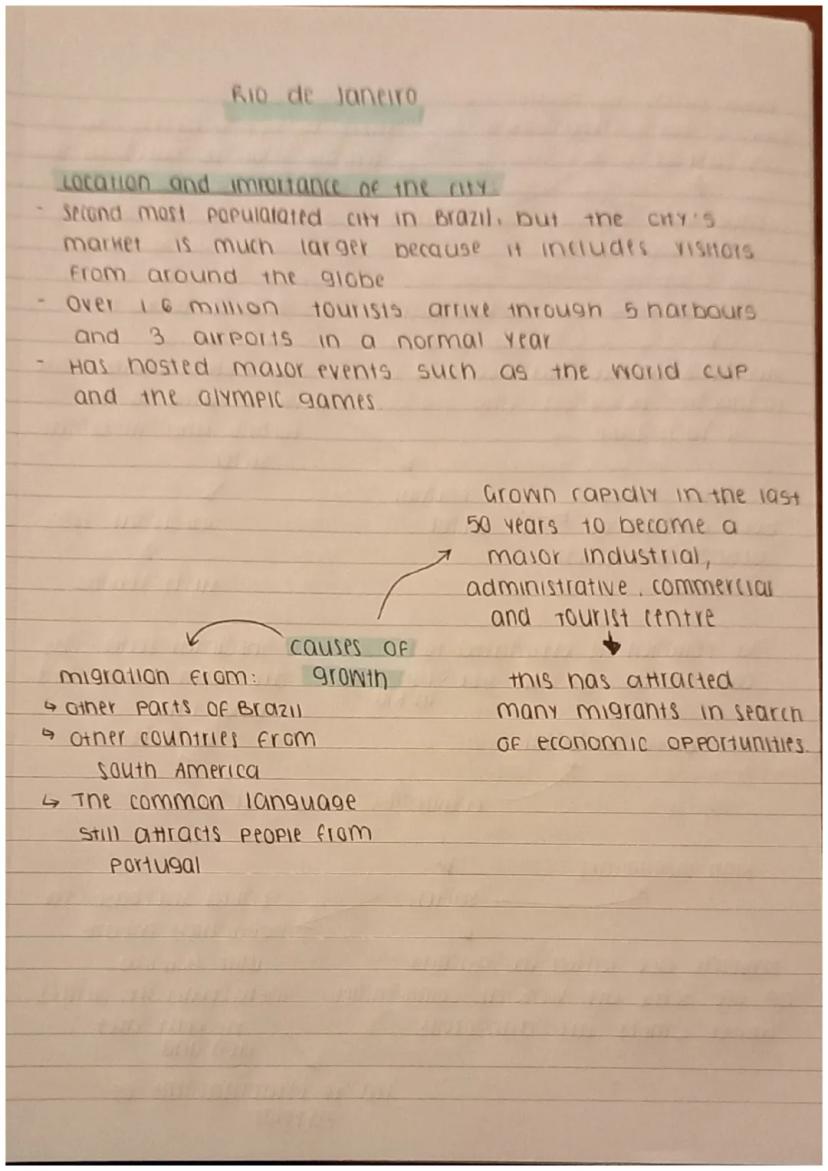 Rio de Janeiro
Location and importance of the city
- second most populatated city in Brazil, but the city's
market is much larger because it includes visitors
from around the globe
- Over 1.6 million tourists arrive through 5 harbours
and 3 airports in a normal year
- Has hosted major events such as the world cup
and the olympic games.
Grown rapidly in the last
50 years to become a
major industrial,
administrative, commercial
and tourist centre
this has attracted
many migrants in search
of economic opportunities.
causes of
growth
migration from:
↳ other parts of Brazil
↳ other countries from
south America
↳ The common language
still attracts people from
portugal